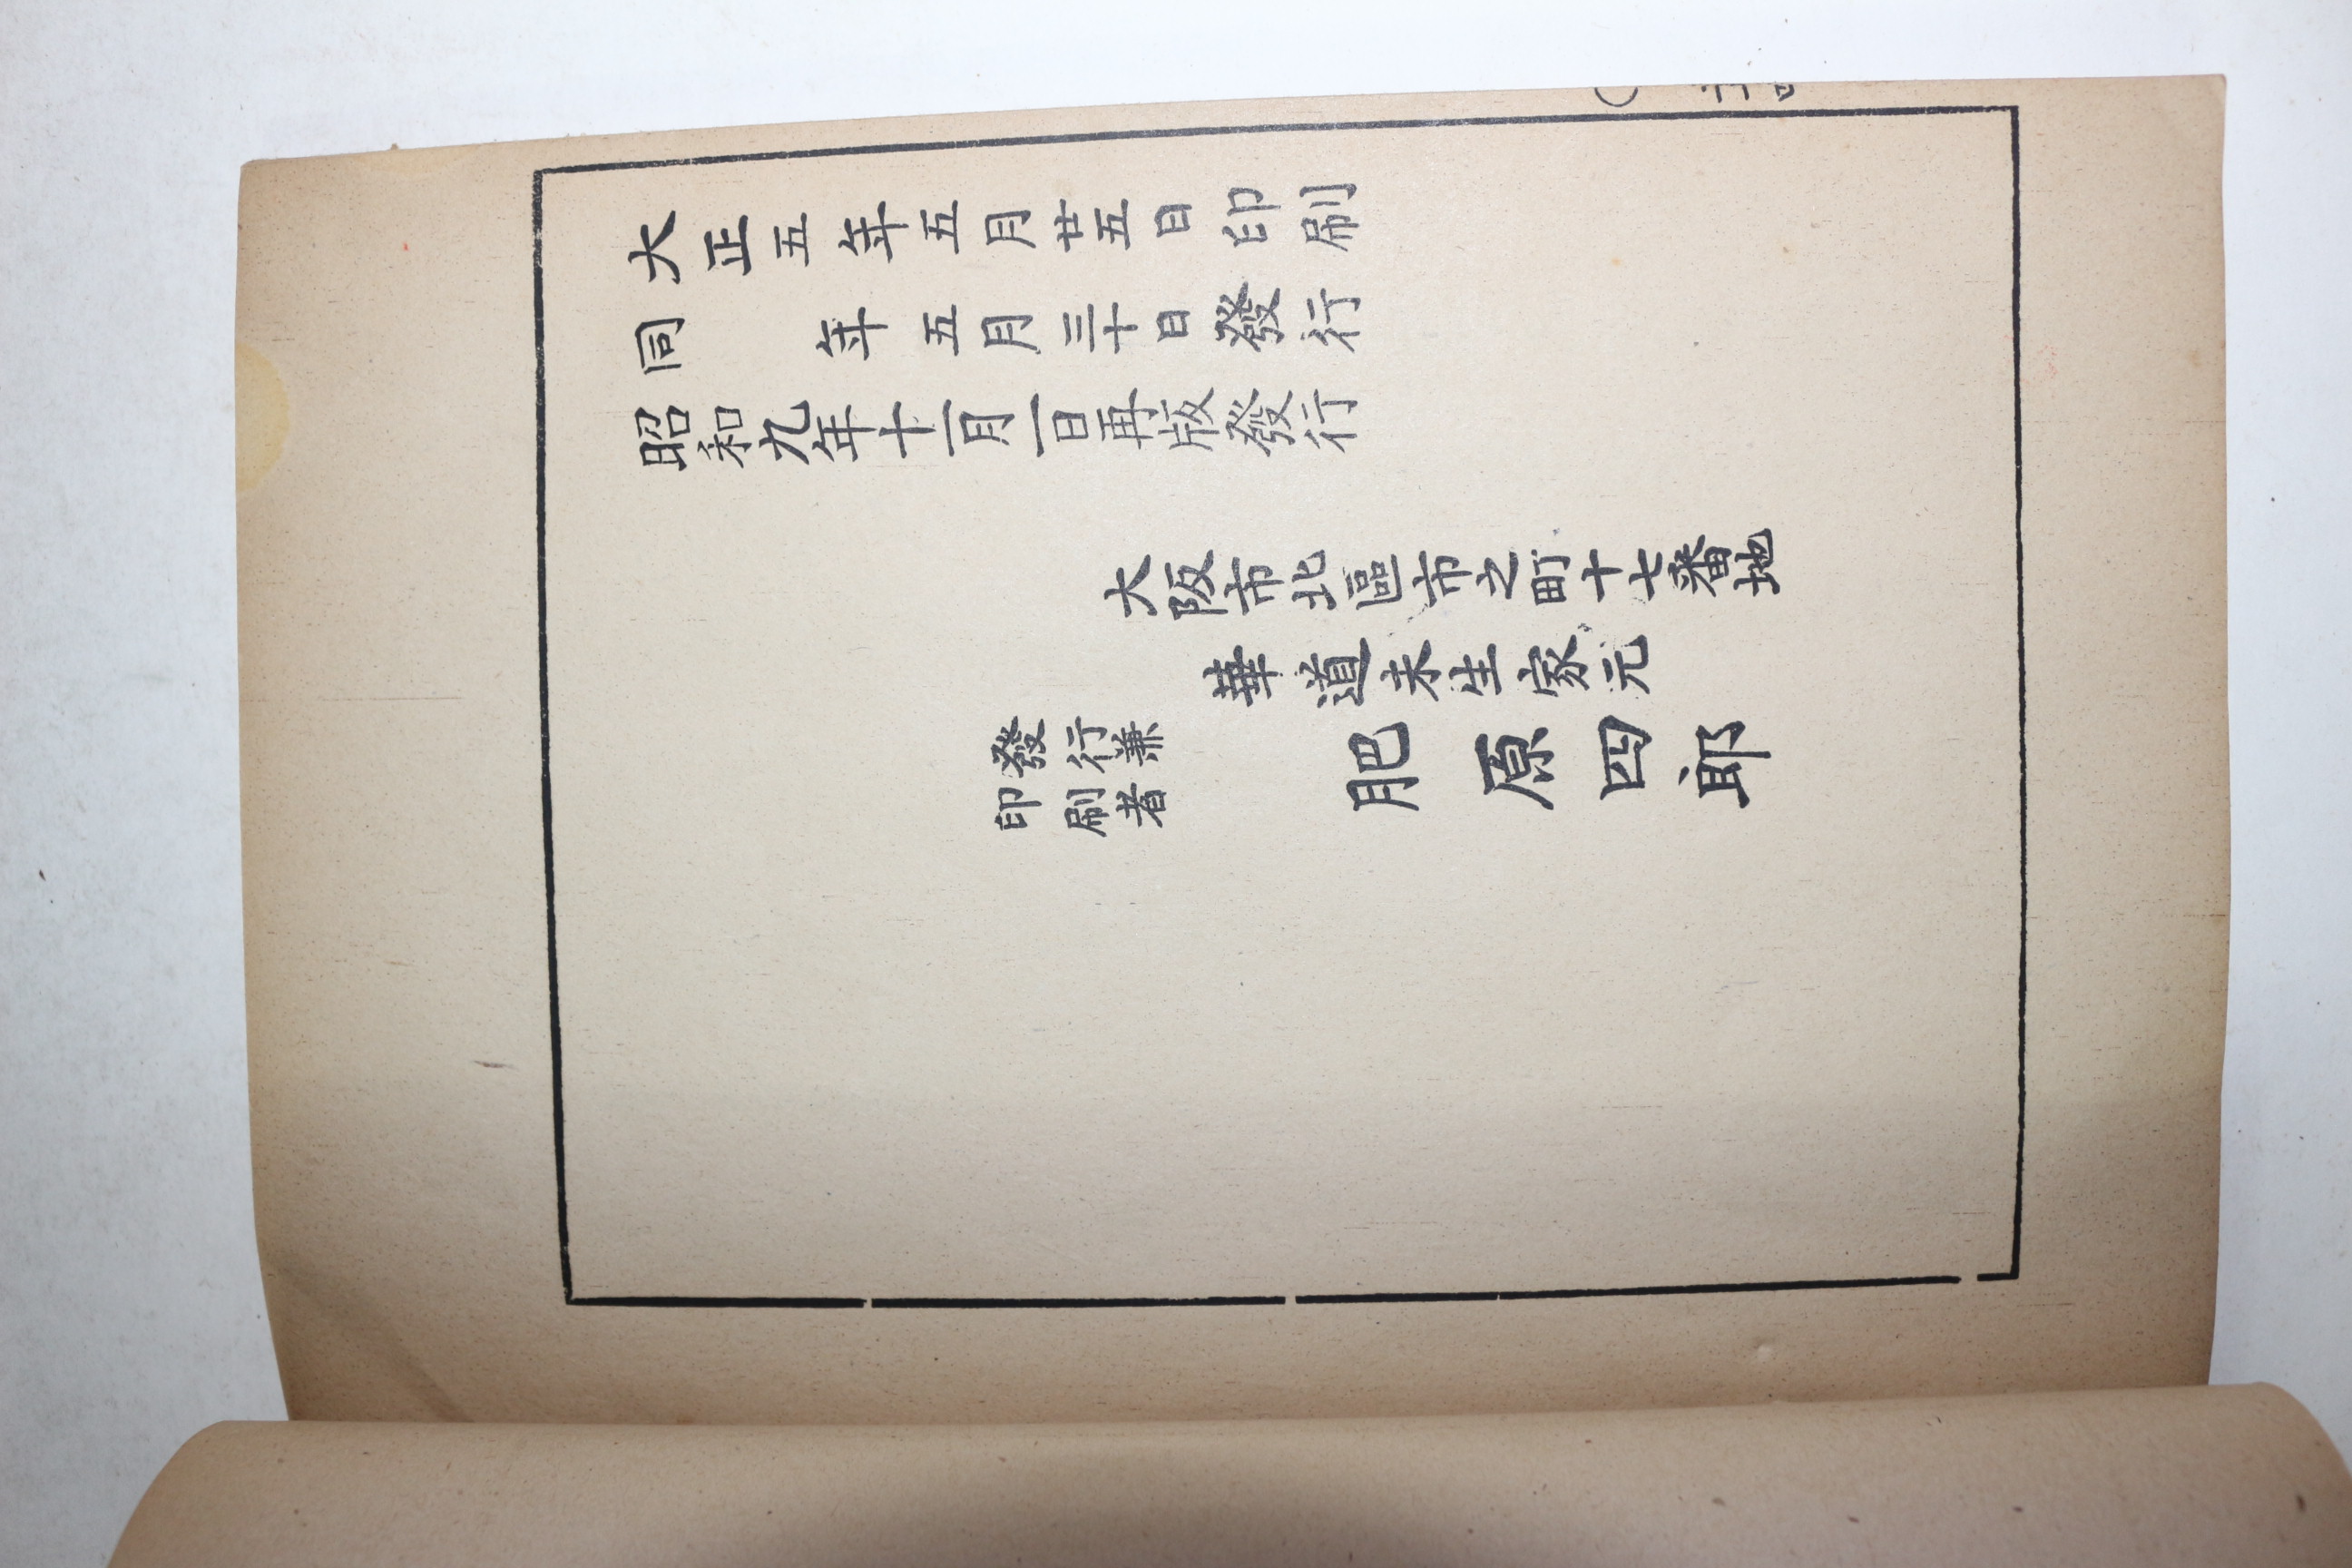 大正五年五月廿五日印刷
同年五月三十日發行
昭和九年十一月一日再版發行
大阪市北區市之町十七番地
華道未生家元
發行兼
印刷者
肥原四郎